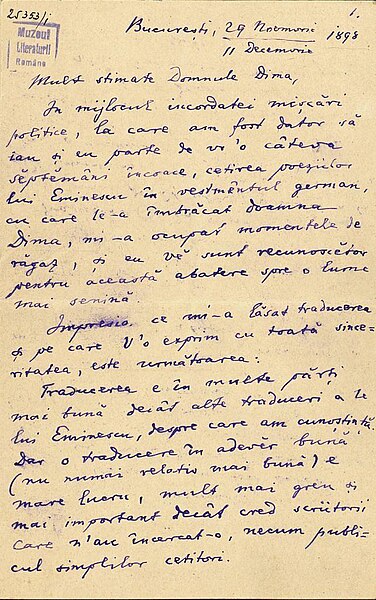 25353/1
1.
Muzeul
Literaturii
Române
București, 29 Noemvrie 1898
11 Decemvrie
Mult stimate Domnule Dima,
In mijlocul incordatei mișcări
politice, la care am fost dator să
iau și eu parte de vr'o câteva
săptemâni încoace, cetirea poeziilor
lui Eminescu în vestmântul german,
cu care le-a îmbrăcat doamna
Dima, mi-a ocupat momentele de
răgaz, și eu vě sunt recunoscětor
pentru această abatere spre o lume
mai senină.
Impresia ce mi-a lăsat traducerea
și pe care V'o exprim cu toată since-
ritatea, este următoarea:
Traducerea e în multe părți
mai bună decât alte traduceri a le
lui Eminescu, despre care am cunoștință.
Dar o traducere în adevěr bună
(nu numai relativ mai bună) e
mare lucru, mult mai greu și
mai important decât cred scriitorii
care n'au încercat-o, necum publi-
cul simplilor cetitori.